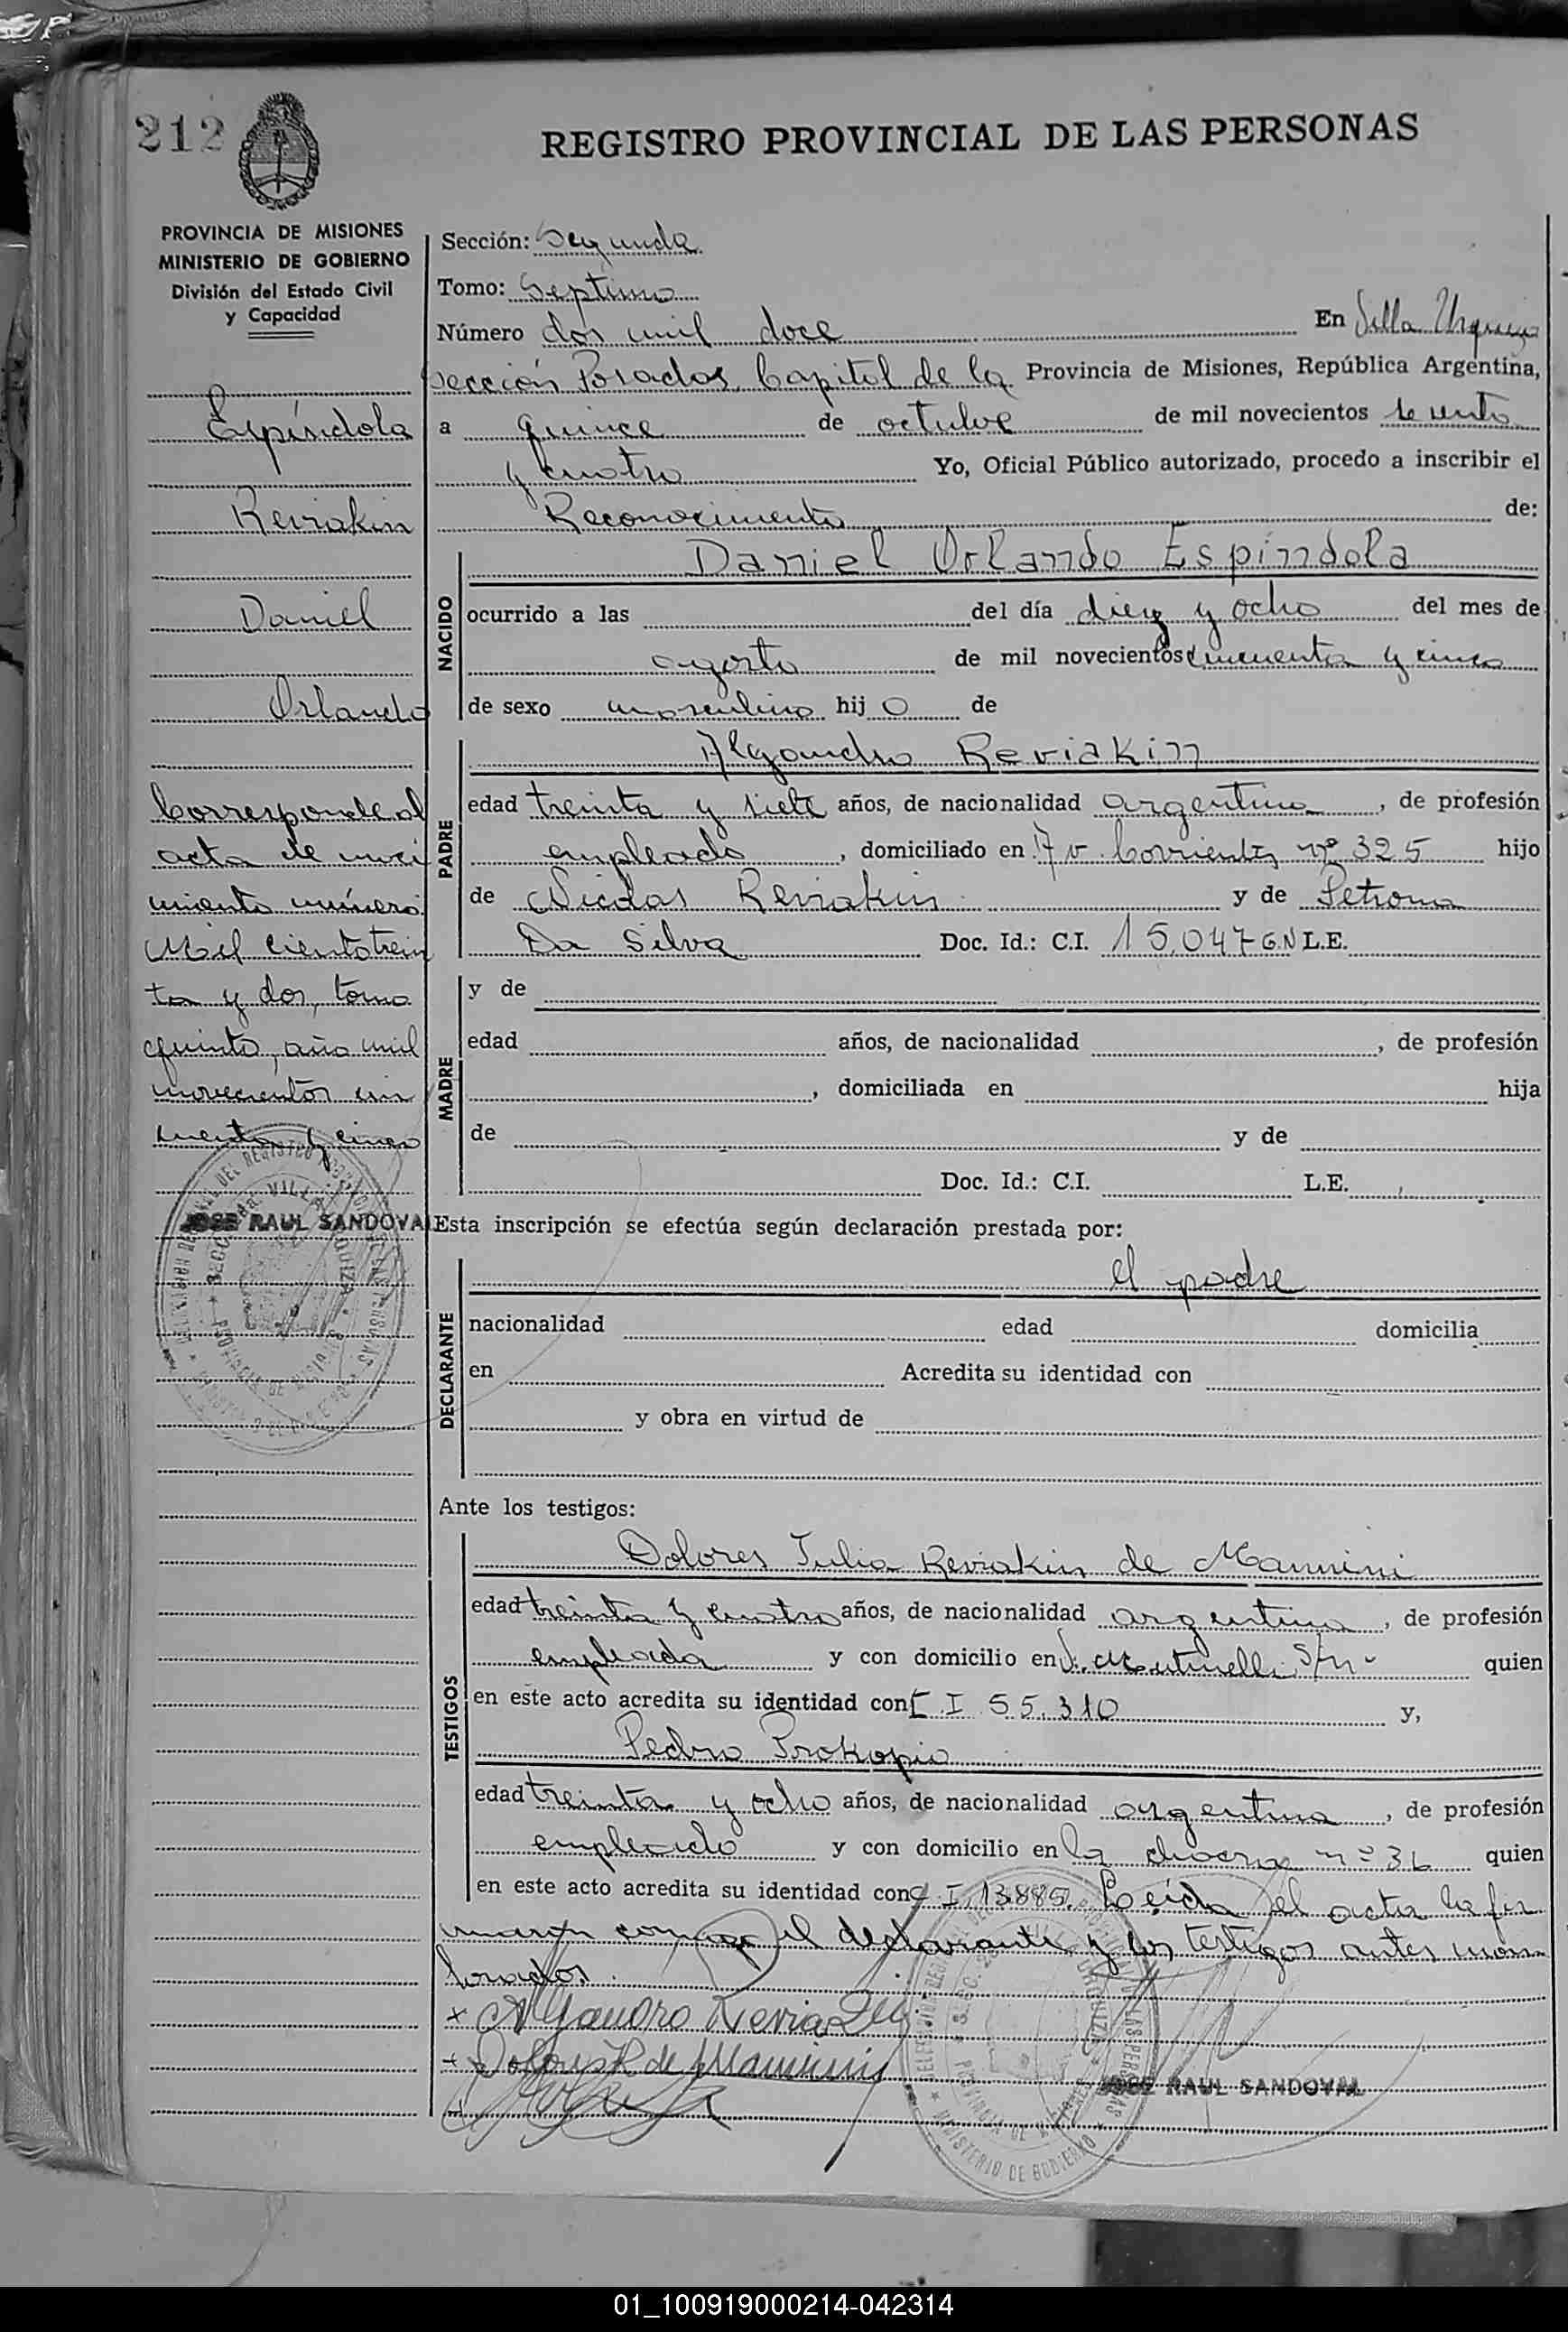 212
REGISTRO PROVINCIAL DE LAS PERSONAS
PROVINCIA DE MISIONES
MINISTERIO DE GOBIERNO
División del Estado Civil
y Capacidad
Espíndola
Reviakin
Daniel
Orlando
Corresponde al
acta de naci
miento número
Mil ciento trein
ta y dos, tomo
quinto, año mil
novecientos cin
cuenta y cinco
JOSE RAUL SANDOVAL
Sección: Segunda
Tomo: Septimo
Número dos mil doce En Villa Urquiza
sección Posadas, Capital de la Provincia de Misiones, República Argentina,
a quince de octubre de mil novecientos setenta
y cuatro Yo, Oficial Público autorizado, procedo a inscribir el
Reconocimiento de:
NACIDO
Daniel Orlando Espíndola
ocurrido a las del día diez y ocho del mes de
agosto de mil novecientos cincuenta y cinco
de sexo masculino hijo de
PADRE
Alejandro Reviakin
edad treinta y siete años, de nacionalidad argentina, de profesión
empleado, domiciliado en Av. Corrientes nº 325 hijo
de Nicolas Reviakin y de Petrona
Da Silva Doc. Id.: C.I. 15.047 G.N L.E.
MADRE
y de
edad años, de nacionalidad , de profesión
, domiciliada en hija
de y de
Doc. Id.: C.I. L.E.
Esta inscripción se efectúa según declaración prestada por:
DECLARANTE
el padre
nacionalidad edad domicilia
en Acredita su identidad con
y obra en virtud de
Ante los testigos:
TESTIGOS
Dolores Julia Reviakin de Mannini
edad treinta y cuatro años, de nacionalidad argentina, de profesión
empleada y con domicilio en S/n- quien
en este acto acredita su identidad con C.I 55.310 y,
Pedro Prokopio
edad treinta y ocho años, de nacionalidad argentina, de profesión
empleado y con domicilio en la chacra nº 36 quien
en este acto acredita su identidad con C.I. 13.885. Leída el acta la fir
maron conmigo el declarante y los testigos antes mon
brados.
x Alejandro Reviakin
x Dolores R de Mannini
JOSE RAUL SANDOVAL
MINISTERIO DE GOBIERNO
01_100919000214-042314